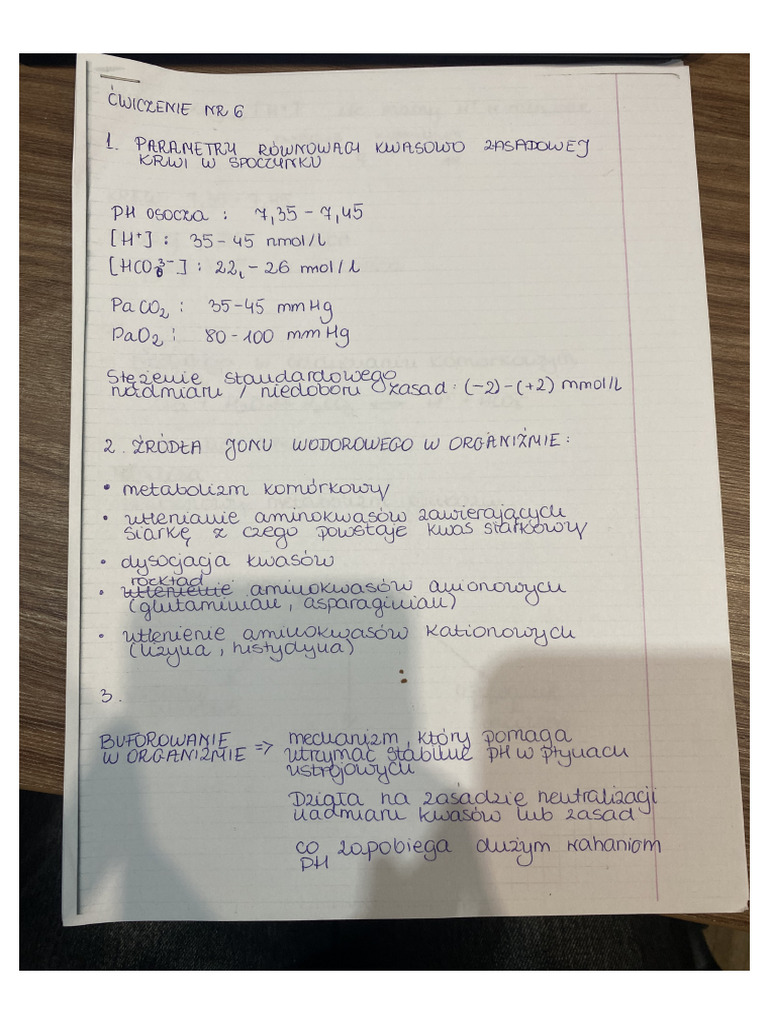 ĆWICZENIE NR 6
1. PARAMETRY RÓWNOWAGI KWASOWO ZASADOWEJ
KRWI W SPOCZYNKU
PH OSOCZA : 7,35 - 7,45
[H⁺] : 35 - 45 nmol/l
[HCO₃⁻] : 22 - 26 mol/l
PaCO₂ : 35-45 mmHg
PaO₂ : 80-100 mmHg
Stężenie standardowego
nadmiaru / niedoboru zasad : (-2) - (+2) mmol/l
2. ŹRÓDŁA JONU WODOROWEGO W ORGANIŹMIE :
• metabolizm komórkowy
• utlenianie aminokwasów zawierających
siarkę z czego powstaje kwas siarkowy
• dysocjacja kwasów
rozkład
• utlenienie aminokwasów anionowych
(glutaminian, asparaginian)
• utlenienie aminokwasów kationowych
(lizyna, histydyna)
3.
BUFOROWANIE => mechanizm, który pomaga
W ORGANIZMIE utrzymać stabilne pH w płynach
ustrojowych
Działa na zasadzie neutralizacji
nadmiaru kwasów lub zasad
co zapobiega dużym wahaniom
PH